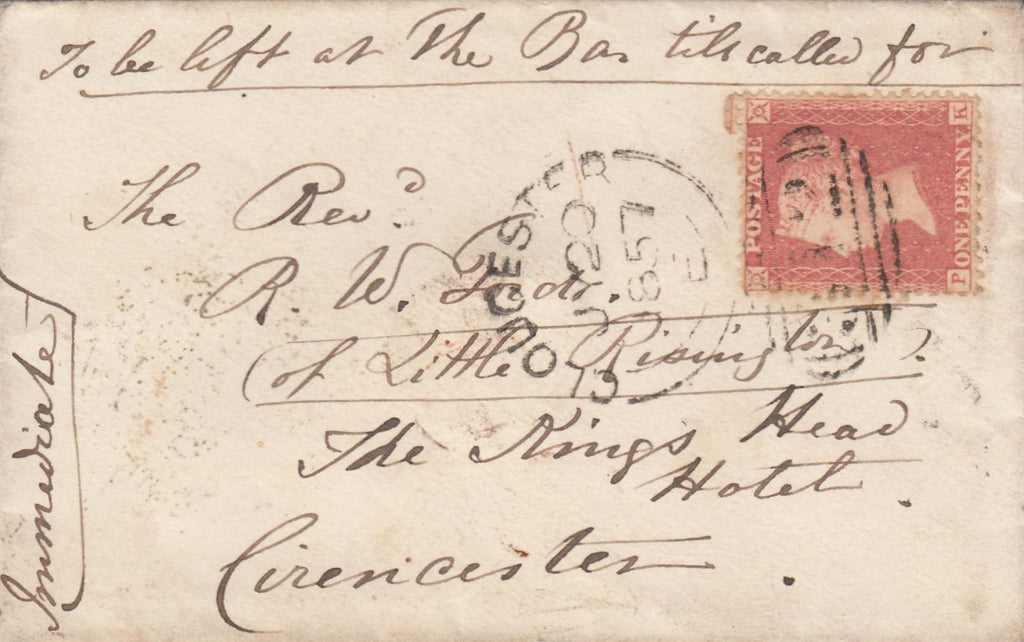 To be left at The Bar till called for
The Revd
R. W.
(of Little Risington).
The Kings Head
Hotel.
Cirencester.
Immediate
GLOUCESTER
JY 20
1857
E
POSTAGE
ONE PENNY
K
P